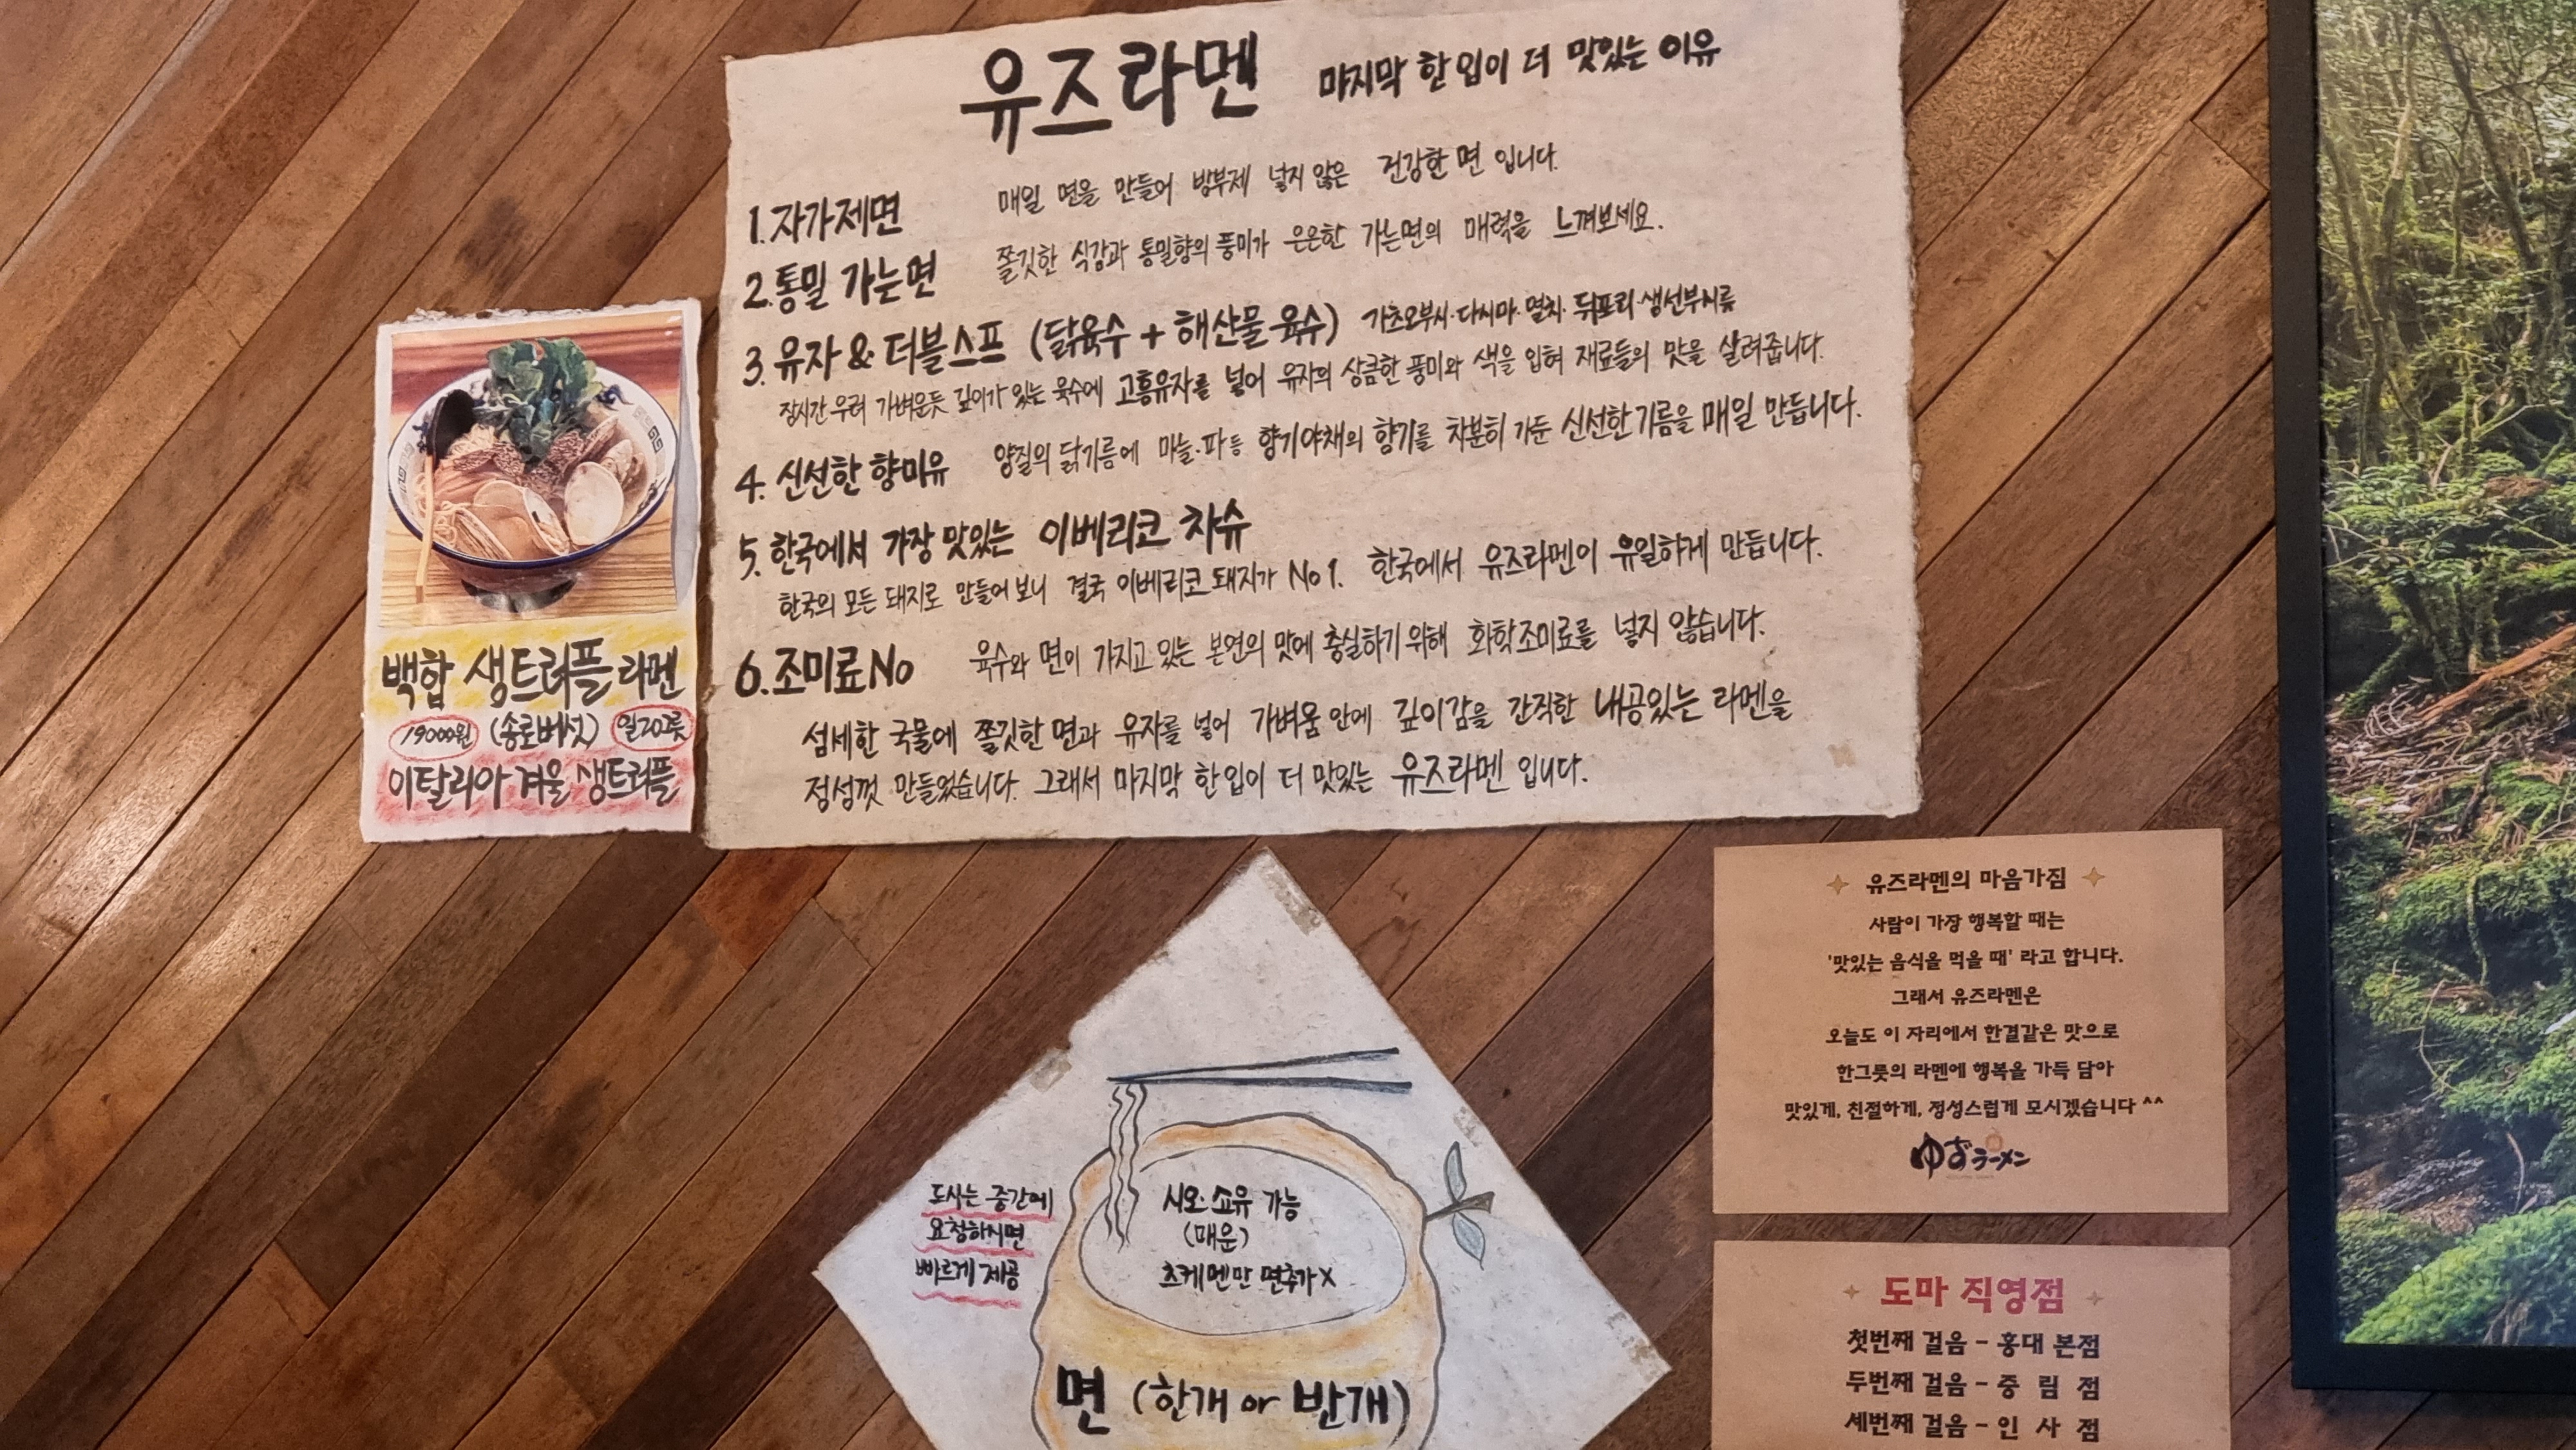 유즈라멘 마지막 한입이 더 맛있는 이유
1. 자가제면 매일 면을 만들어 방부제 넣지 않은 건강한 면 입니다.
2. 통밀 가는면 쫄깃한 식감과 통밀향의 풍미가 은은한 가는면의 매력을 느껴보세요.
3. 유자 & 더블스프 (닭육수 + 해산물 육수) 가츠오부시·다시마·멸치·뒤포리·생선부시류
장시간 우려 가벼운듯 깊이가 있는 육수에 고흥유자를 넣어 유자의 상큼한 풍미와 색을 입혀 재료들의 맛을 살려줍니다.
4. 신선한 향미유 양질의 닭기름에 마늘·파 등 향기야채의 향기를 차분히 가둔 신선한 기름을 매일 만듭니다.
5. 한국에서 가장 맛있는 이베리코 차슈
한국의 모든 돼지로 만들어 보니 결국 이베리코 돼지가 No 1. 한국에서 유즈라멘이 유일하게 만듭니다.
6. 조미료 No 육수와 면이 가지고 있는 본연의 맛에 충실하기 위해 화학조미료를 넣지 않습니다.
섬세한 국물에 쫄깃한 면과 유자를 넣어 가벼움 안에 깊이감을 간직한 내공있는 라멘을
정성껏 만들었습니다. 그래서 마지막 한입이 더 맛있는 유즈라멘 입니다.
백합 생트러플 라멘
19000원 (송로버섯) 일20그릇
이탈리아 겨울 생트러플
도사는 중간에
요청하시면
빠르게 제공
시오·쇼유 가능
(매운)
츠케멘만 면추가 X
면 (한개 or 반개)
유즈라멘의 마음가짐
사람이 가장 행복할 때는
'맛있는 음식을 먹을 때' 라고 합니다.
그래서 유즈라멘은
오늘도 이 자리에서 한결같은 맛으로
한그릇의 라멘에 행복을 가득 담아
맛있게, 친절하게, 정성스럽게 모시겠습니다 ^^
ゆずラーメン
도마 직영점
첫번째 걸음 - 홍대 본점
두번째 걸음 - 중 림 점
세번째 걸음 - 인 사 점